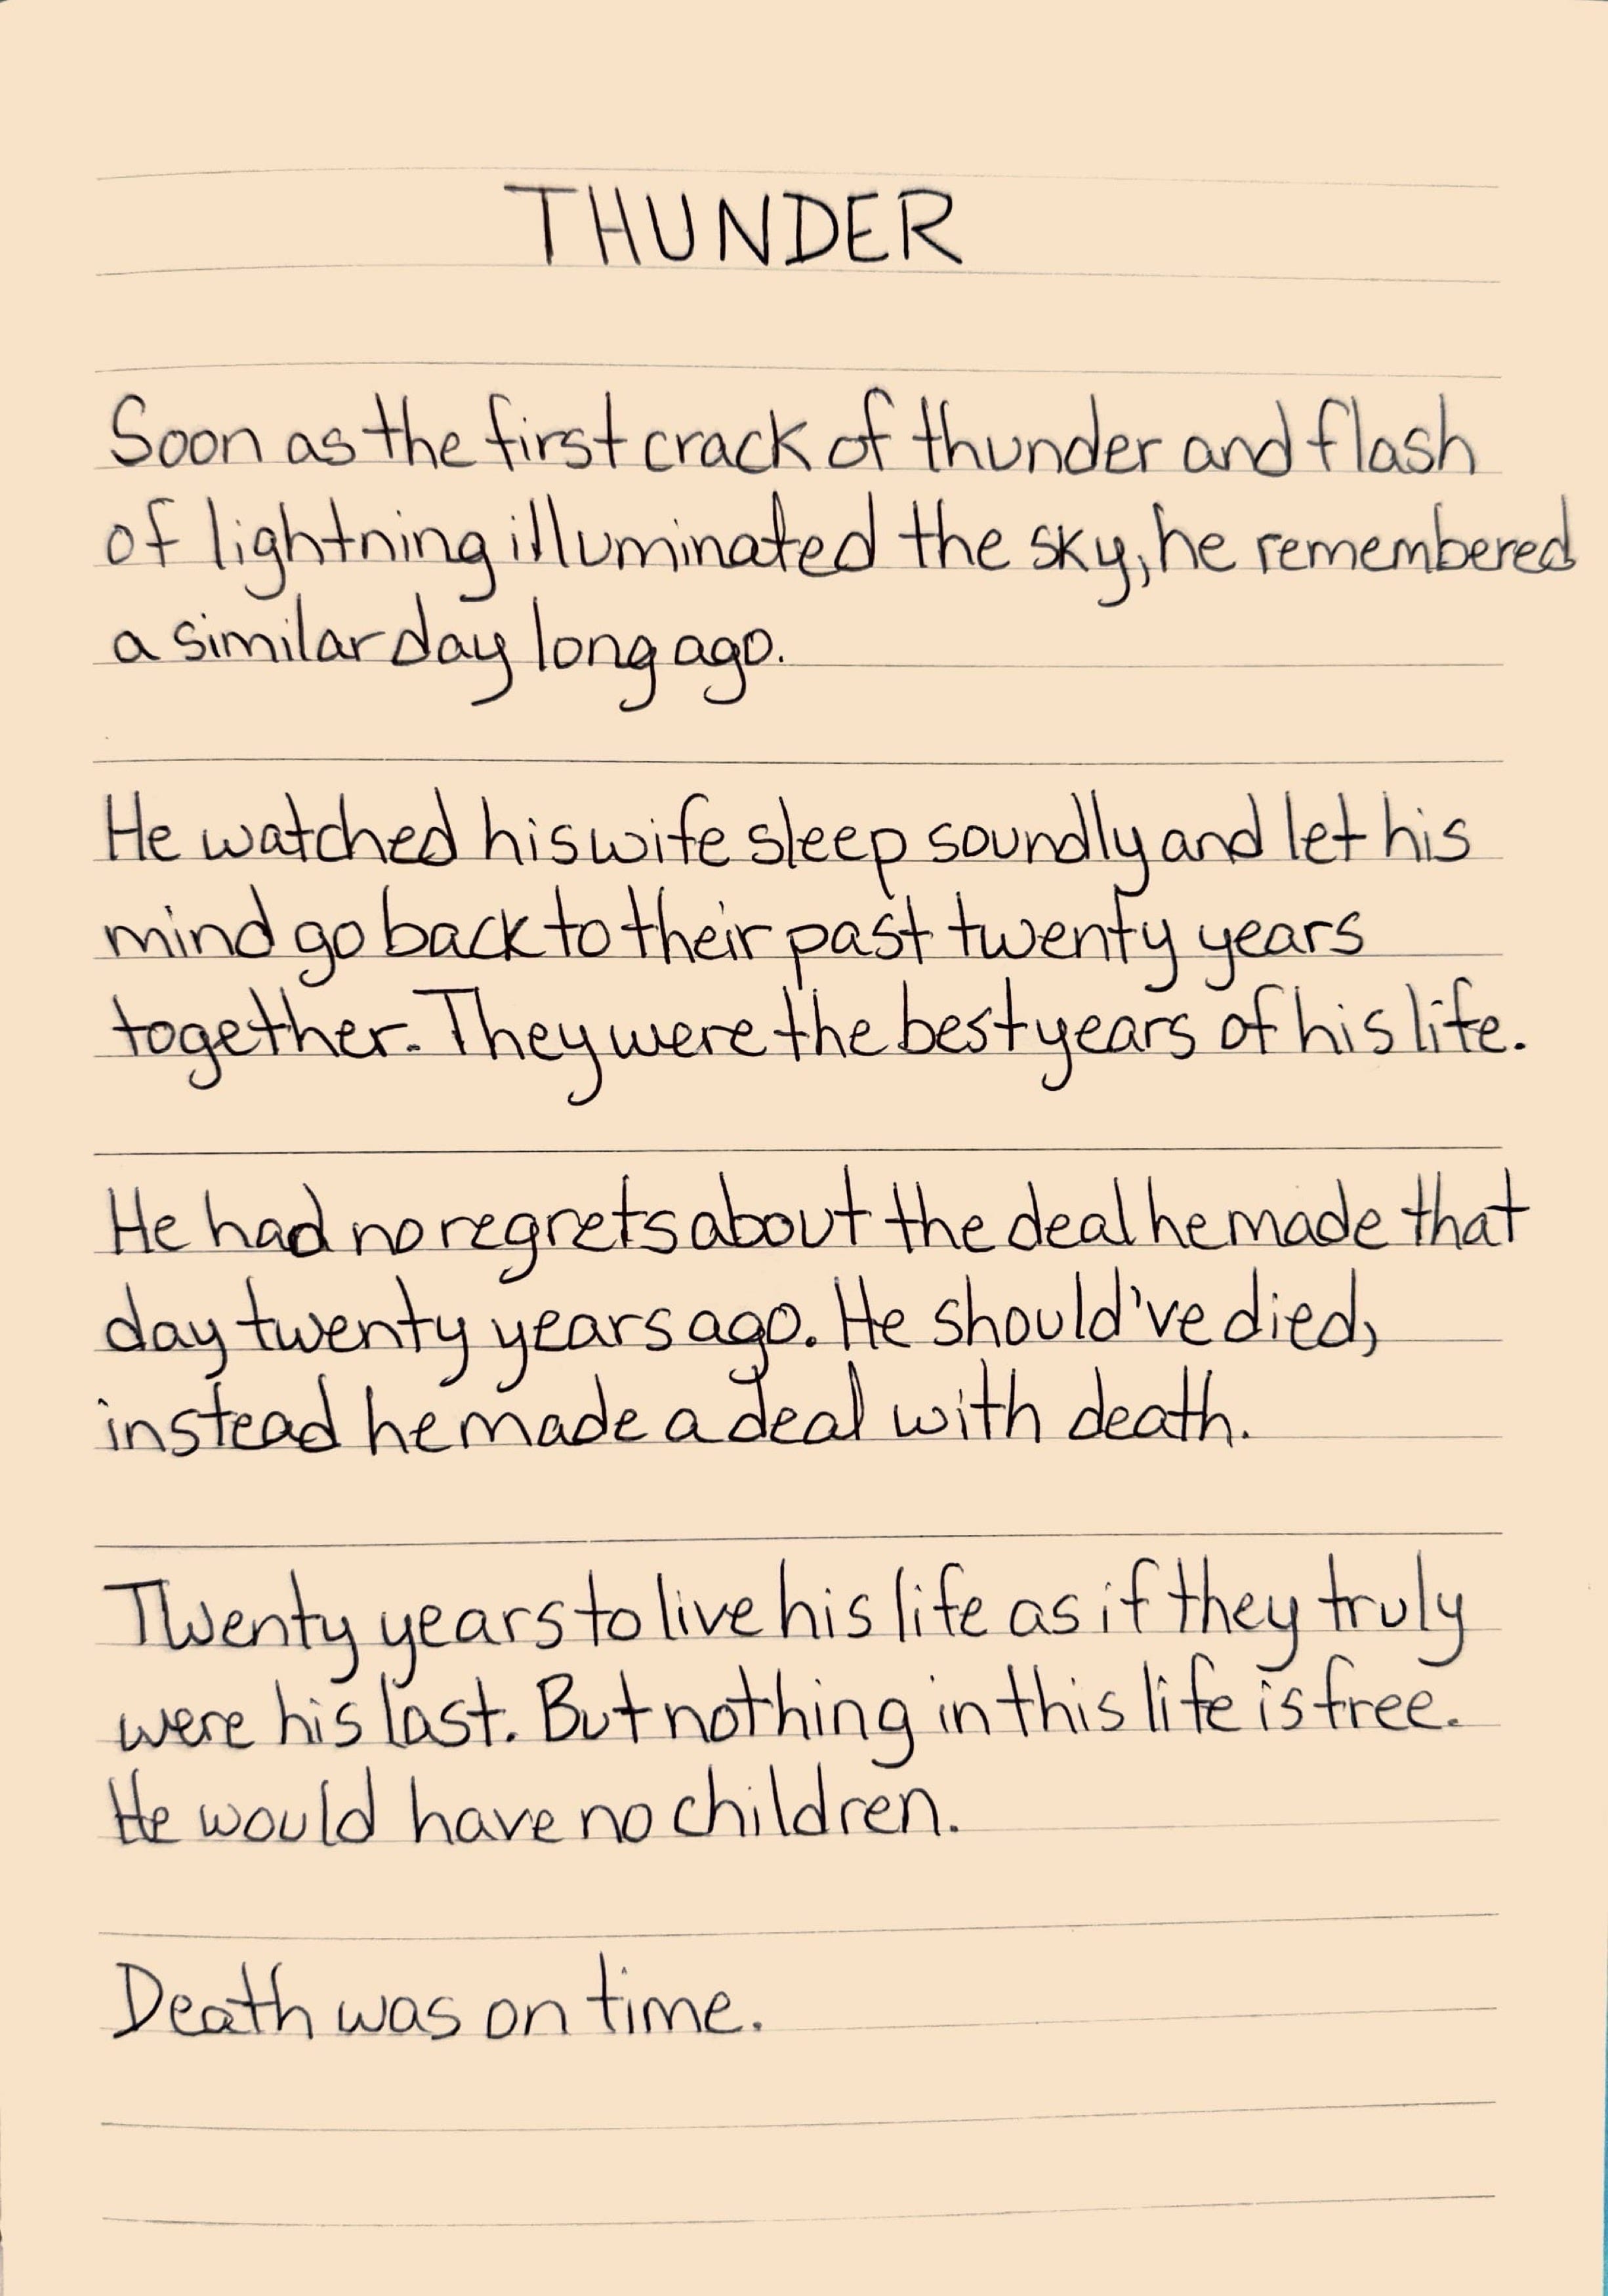 THUNDER
Soon as the first crack of thunder and flash
of lightning illuminated the sky, he remembered
a similar day long ago.
He watched his wife sleep soundly and let his
mind go back to their past twenty years
together. They were the best years of his life.
He had no regrets about the deal he made that
day twenty years ago. He should've died,
instead he made a deal with death.
Twenty years to live his life as if they truly
were his last. But nothing in this life is free.
He would have no children.
Death was on time.